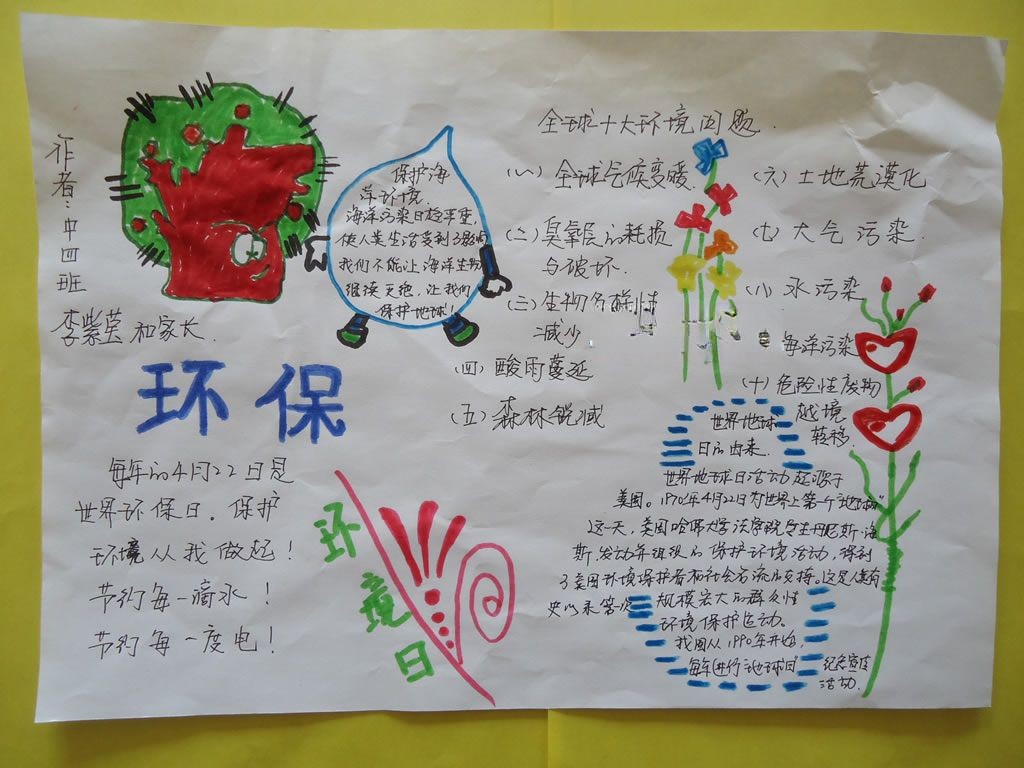 作者:中四班
李紫莹和家长.
环保
每年的4月22日是
世界环保日。保护
环境从我做起!
节约每一滴水!
节约每一度电!
保护海
洋环境.
海洋污染日趋严重
使人类生活受到了影响
我们不能让海洋生物
继续灭绝,让我们
保护地球!
环境日
全球十大环境问题.
(一)全球气候变暖.
(二)臭氧层的耗损
与破坏.
(三)生物多样性
减少
(四)酸雨蔓延
(五)森林锐减
(六)土地荒漠化
(七)大气污染.
(八)水污染
海洋污染
(十)危险性废物
越境
转移.
世界地球
日的由来.
世界地球日活动起源于
美国。1970年4月22日为世界上第一个"地球日"
这一天,美国哈佛大学法学院学生丹尼斯·海
斯,发动并组织的保护环境活动,得到
了美国环境保护者和社会名流的支持。这是人类有
史以来第一次
规模宏大的群众性
环境保护运动.
我国从1990年开始,
每年进行地球日
纪念宣传
活动.